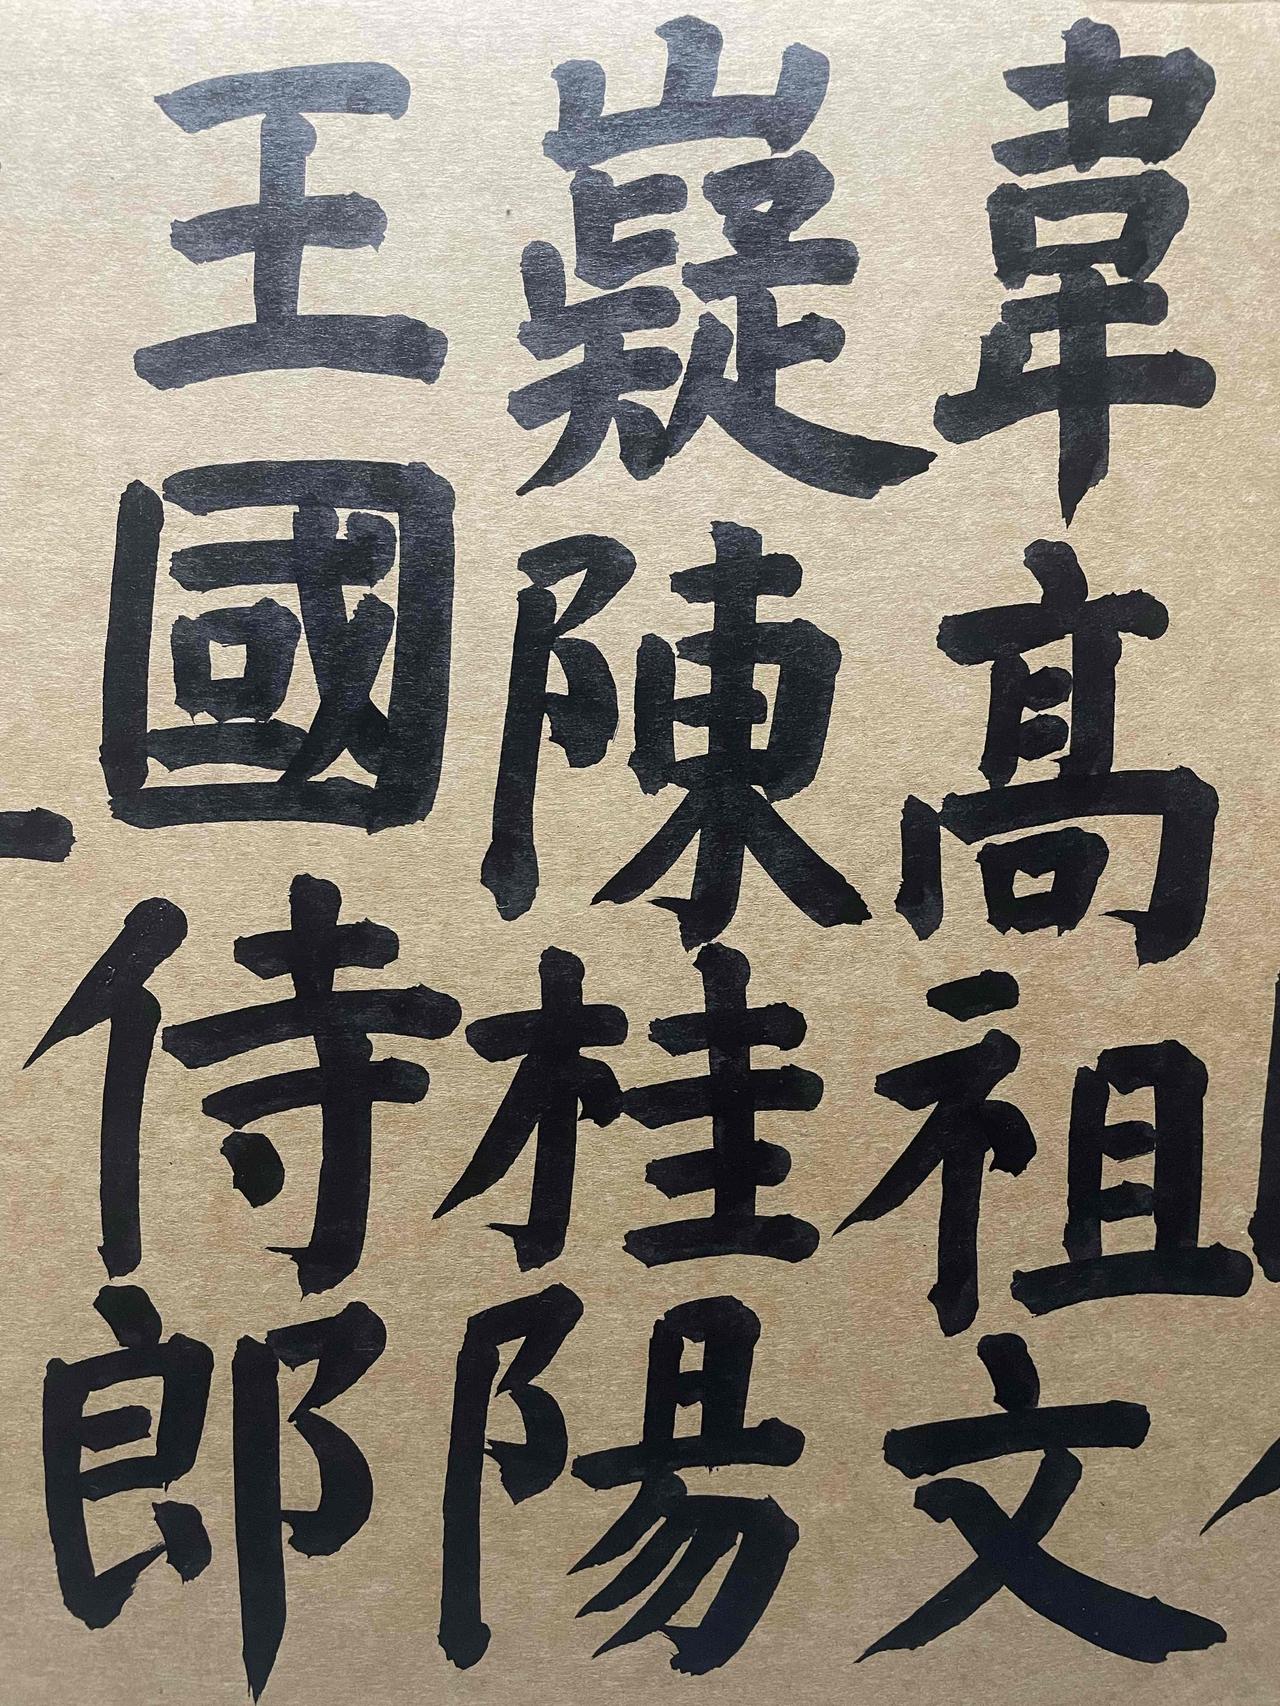 韋高祖文
嶷陳桂陽
王國侍郎